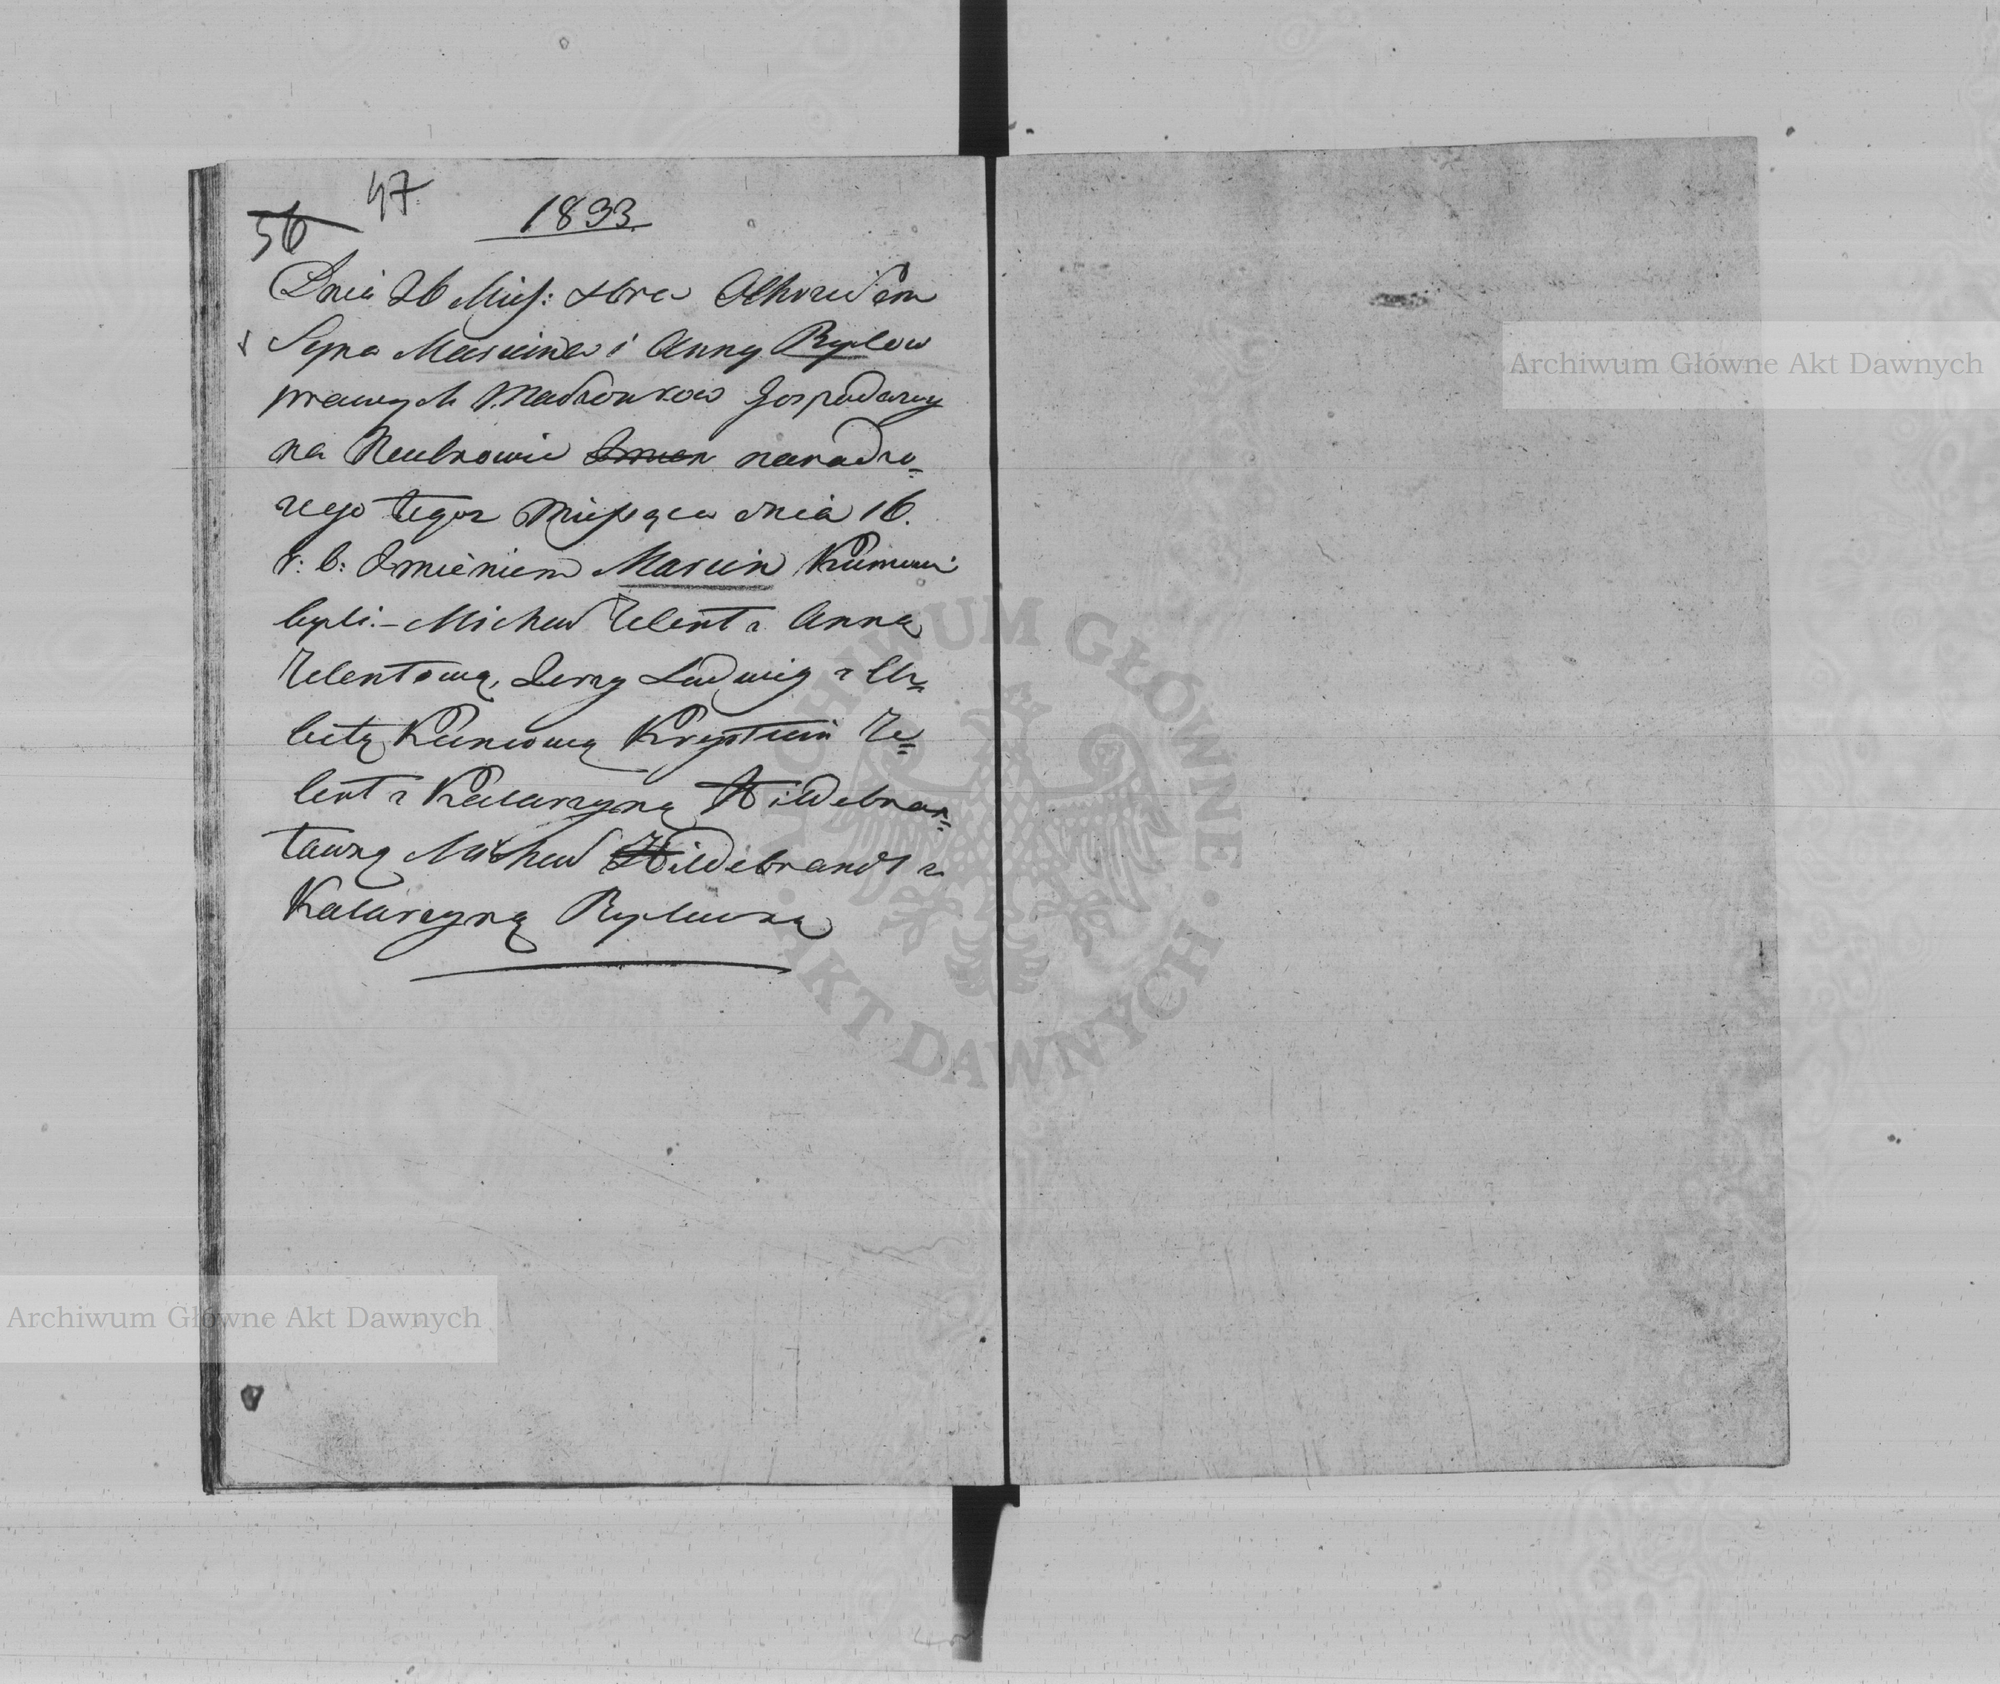 47
56
1833
Dnia 26 Mies: xbra Okrzciłem
Syna Marcina i Anny Ryplow
prawych Małżonkow Gospodarzy
na Neubrowie narodzo=
nego tegoz Miesąca dnia 16.
r: b: Imieniem Marcin Kumami
byli. – Michał Zelent z Anną
Zelentową, Jerzy Ludwig z Elż
bietą Kuniową Krystian Ze=
lent z Katarzyną Hildebran=
tawną Michał Hildebrandt z
Katarzyną Ryplowną
Archiwum Główne Akt Dawnych
Archiwum Główne Akt Dawnych
ARCHIWUM GŁÓWNE · AKT DAWNYCH ·